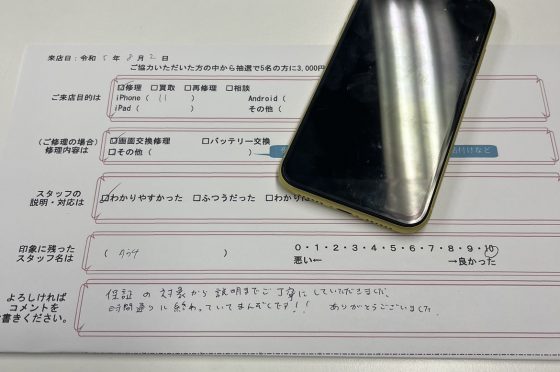 来店日：令和 5 年 8 月 2 日
ご協力いただいた方の中から抽選で5名の方に3,000円
ご来店目的は
☑修理 □買取 □再修理 □相談
iPhone（ 11 ） Android（
iPad（ ） その他（
（ご修理の場合）
修理内容は
☑画面交換修理 □バッテリー交換
□その他（ ）
付けなど
スタッフの
説明・対応は
☑わかりやすかった □ふつうだった □わかりに
印象に残った
スタッフ名は
（ ）
0・1・2・3・4・5・6・7・8・9・10
悪い← →良かった
よろしければ
コメントを
お書きください。
保証の対象から説明までご丁寧にしていただきました。
時間通りに終わっていてまんぞくです！！ ありがとうございました